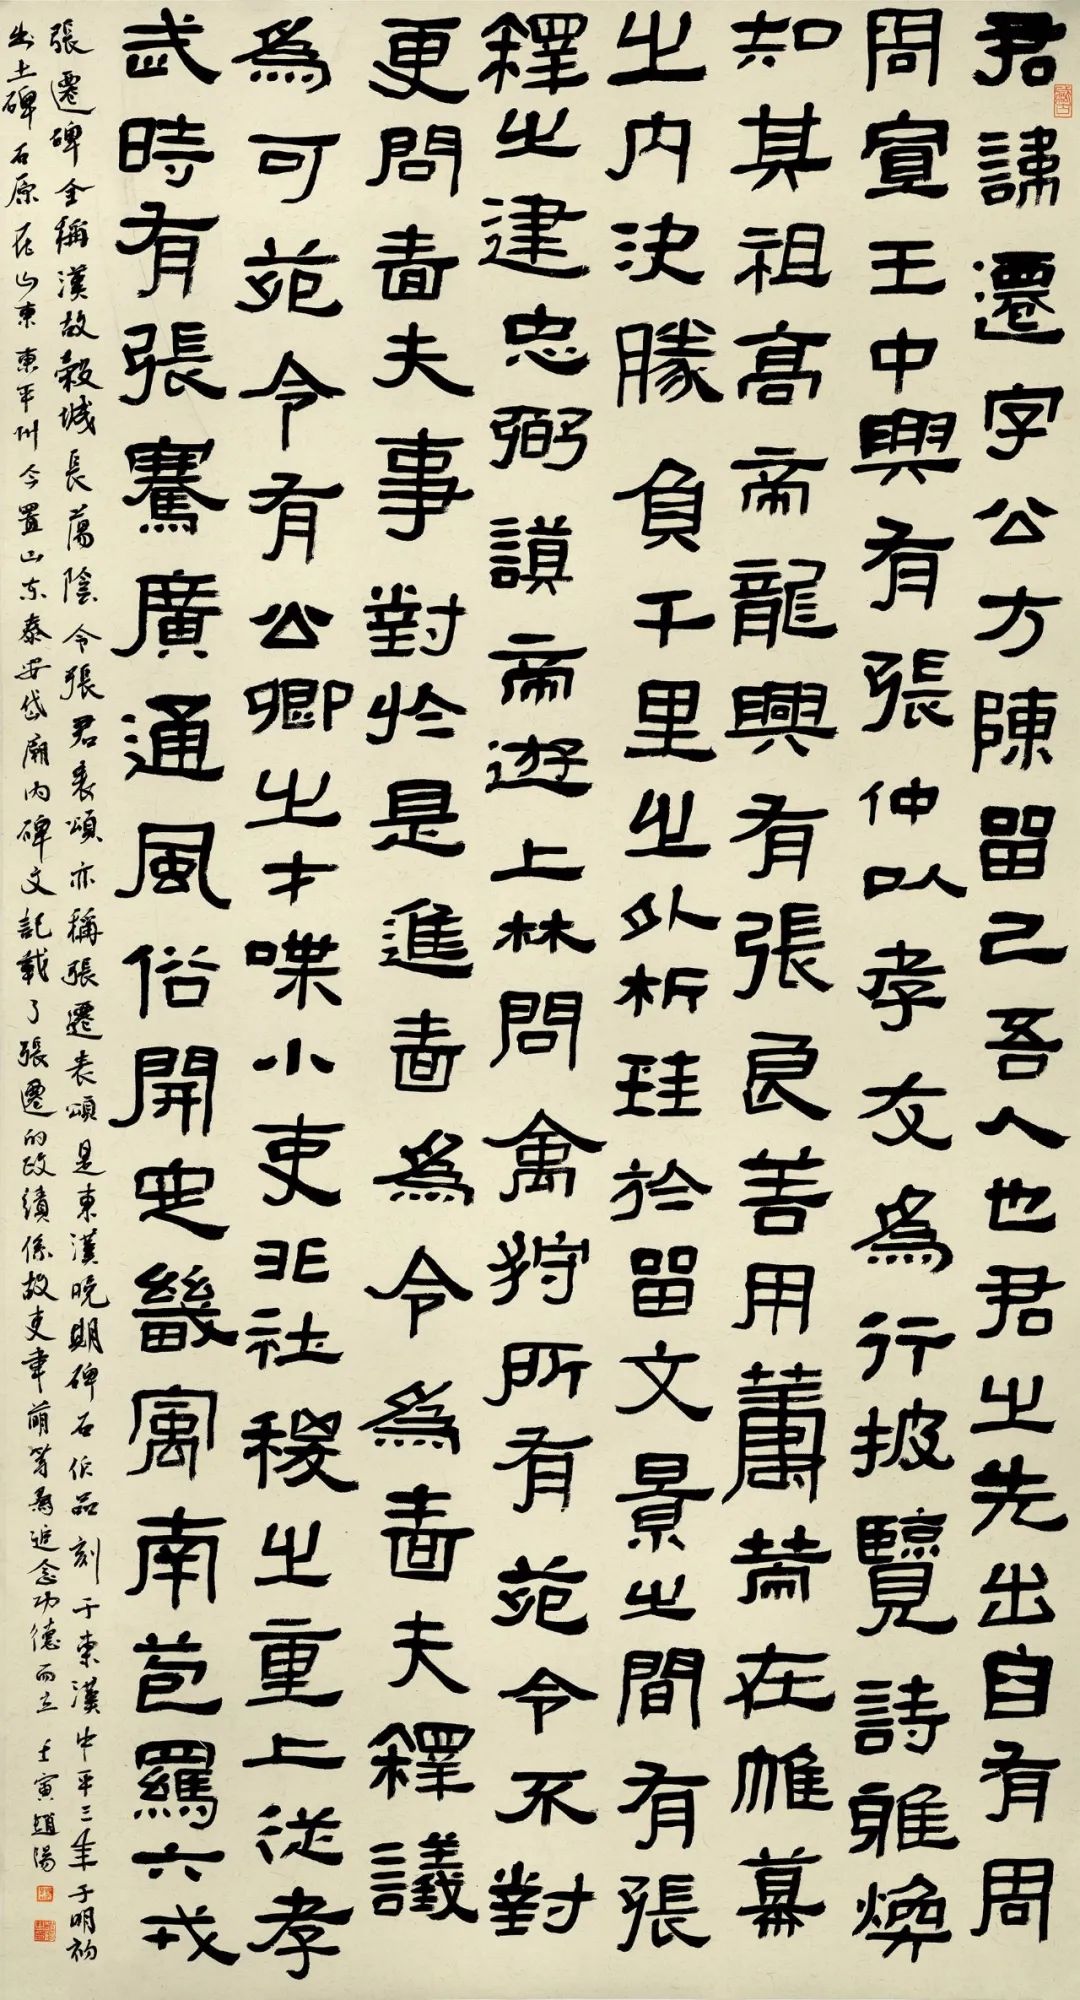 君諱遷字公方陳留己吾人也君之先出自有周
周宣王中興有張仲以孝友為行披覽詩雅煥
知其祖高帝龍興有張良善用籌策在帷幕
之內決勝負千里之外析珪於留文景之間有張
釋之建忠弼謨帝遊上林問禽狩所有苑令不對
更問嗇夫事對於是進嗇為令令為嗇夫釋議
為可苑令有公卿之才喋小吏非社稷之重上從孝
武時有張騫廣通風俗開定畿寓南苞羈六戎
張遷碑全稱漢故穀城長蕩陰令張君表頌亦稱張遷表頌是東漢晚期碑石作品刻于東漢中平三年于明初
出土碑石原在山東東平州今置山东泰安岱廟內碑文記載了張遷的政績係故吏韋萌等為追念功德而立壬寅趙陽